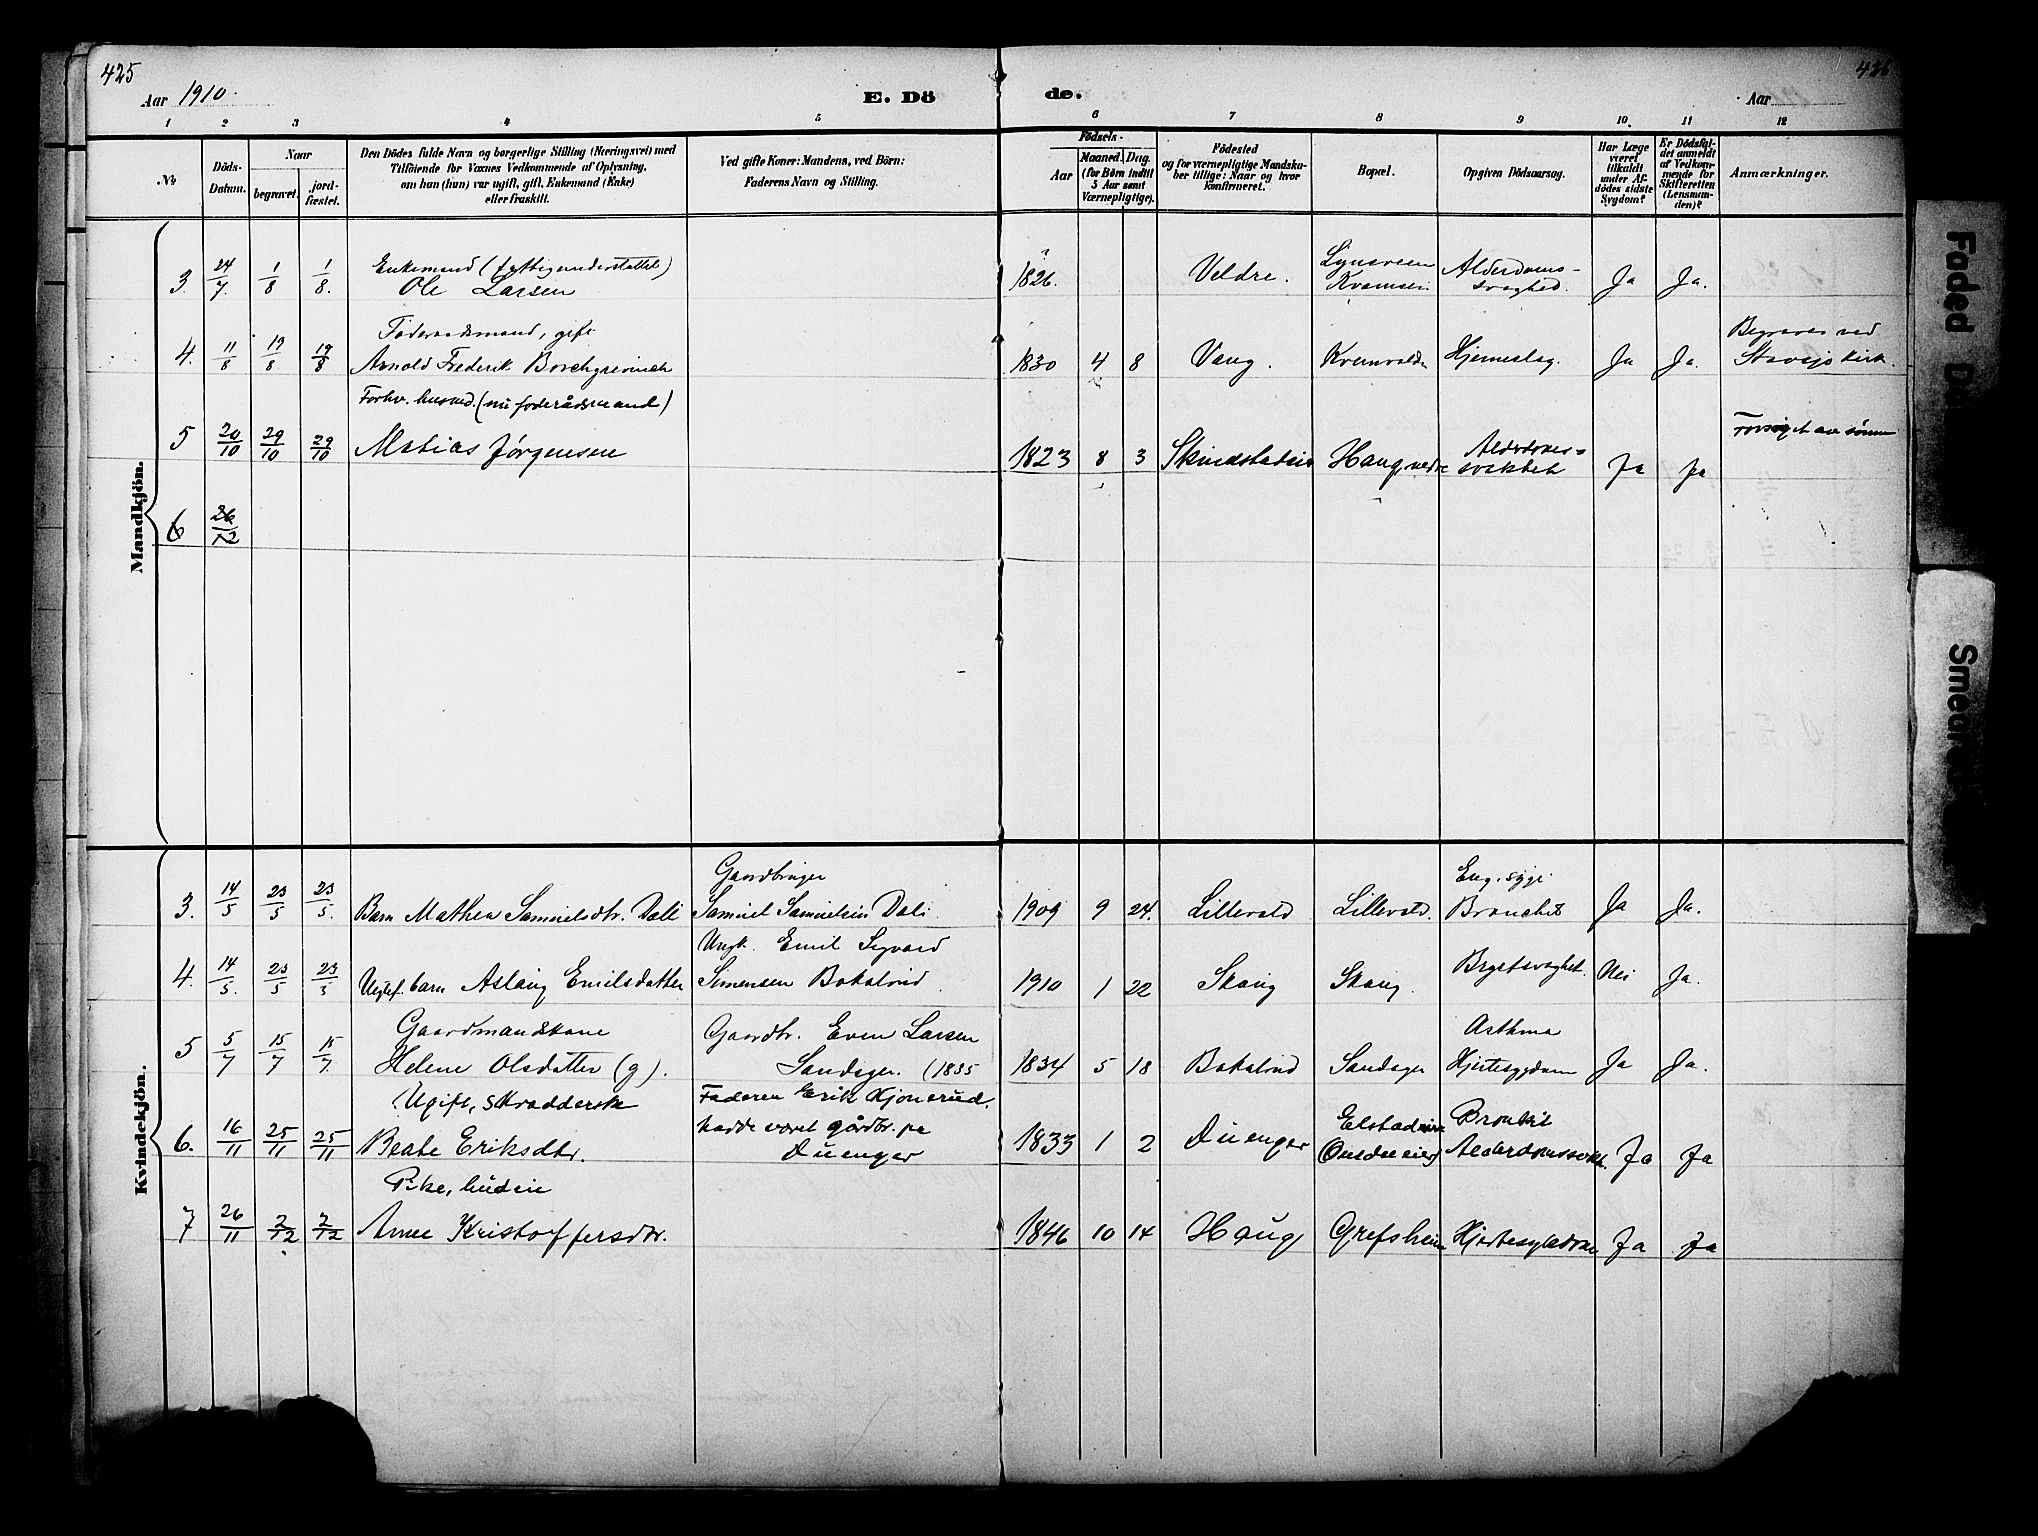 425
426
Aar 1910.
E. Dö
de.
Aar
1 2 3 4 5 6 7 8 9 10. 11 12
№
Döds-
Datum.
Naar
begravet.
jord-
fæstet.
Den Dödes fulde Navn og borgerlige Stilling (Næringsvei) med
Tilföiende for Voxnes Vedkommende af Oplysning,
om han (hun) var ugift, gift, Enkemand (Enke)
eller fraskilt.
Ved gifte Koner: Mandens, ved Börn:
Faderens Navn og Stilling.
Födsels-
Aar
Maaned.
Dag.
(for Börn indtil
5 Aar samt
Værnepligtige).
Födested
og for værnepligtige Mandska-
ber tillige: Naar og hvor
konfirmeret.
Bopæl.
Opgiven Dödsaarsag.
Har Læge
været
tilkaldt
under Af-
dödes sidste
Sygdom?
Er Dödsfal-
det anmeldt
af Vedkom-
mende for
Skifteretten
(Lensman-
den)?
Anmærkninger.
Mandkjön.
Enkemand (fattigunderstøttet)
3. 24/7. 1/8 1/8. Ole Larsen 1826. Veldre. Alderdoms-
svaghed. Ja Ja.
Føderaadsmand, gift
4. 11/8 19/8 19/8 Arnold Frederik Borchgrevinck 1830 4 8 Vang. Hjerneslag. Ja Ja.
Begraves ved
Forhv. husmd. (nu føderådsmand)
5 20/10 29/10 29/10 Matias Jørgensen 1823 8 3 Haug nedre Alderdoms-
svakhet Ja ja
Forsørget av sønnen
6 26/12
Kvindekjön.
Gaardbruger
3. 14/5 23/5 23/5. Barn Mathea Samuelsdtr. Dæli Samuel Samuelsen Dæli. 1909 9 24. Lillevold Lillevold. Eng. syge.
Bronchit Ja Ja.
Ungk. Emil Sigvard
4. 14/5. 23/5 23/5 Uegtef. barn Aslaug Emilsdatter Simensen Bakalrud. 1910 1 22 Skaug Skaug. Brystsvaghet. Nei Ja.
Gaardmandskone
Gaardbr. Even Larsen
5 5/7 15/7 15/7. Helene Olsdatter (g). Sandager. (1835 1834 5 18 Bakalrud Sandager Asthma
Hjertesygdom Ja Ja.
Ugift, skrædderske
Faderen Erik Kjonerud.
hadde været gårdbr. på
6. 16/11 25/11 25/11 Beate Eriksdtr. Duenger 1833 1 2 Duenger Bronkit
Alderdomssvakh. Ja Ja
Pike, budeie
7 26/11 2/12 2/12 Anne Kristoffersdtr. 1846 10 14 Haug Grefsheim Hjertesygdom Ja Ja
Faded